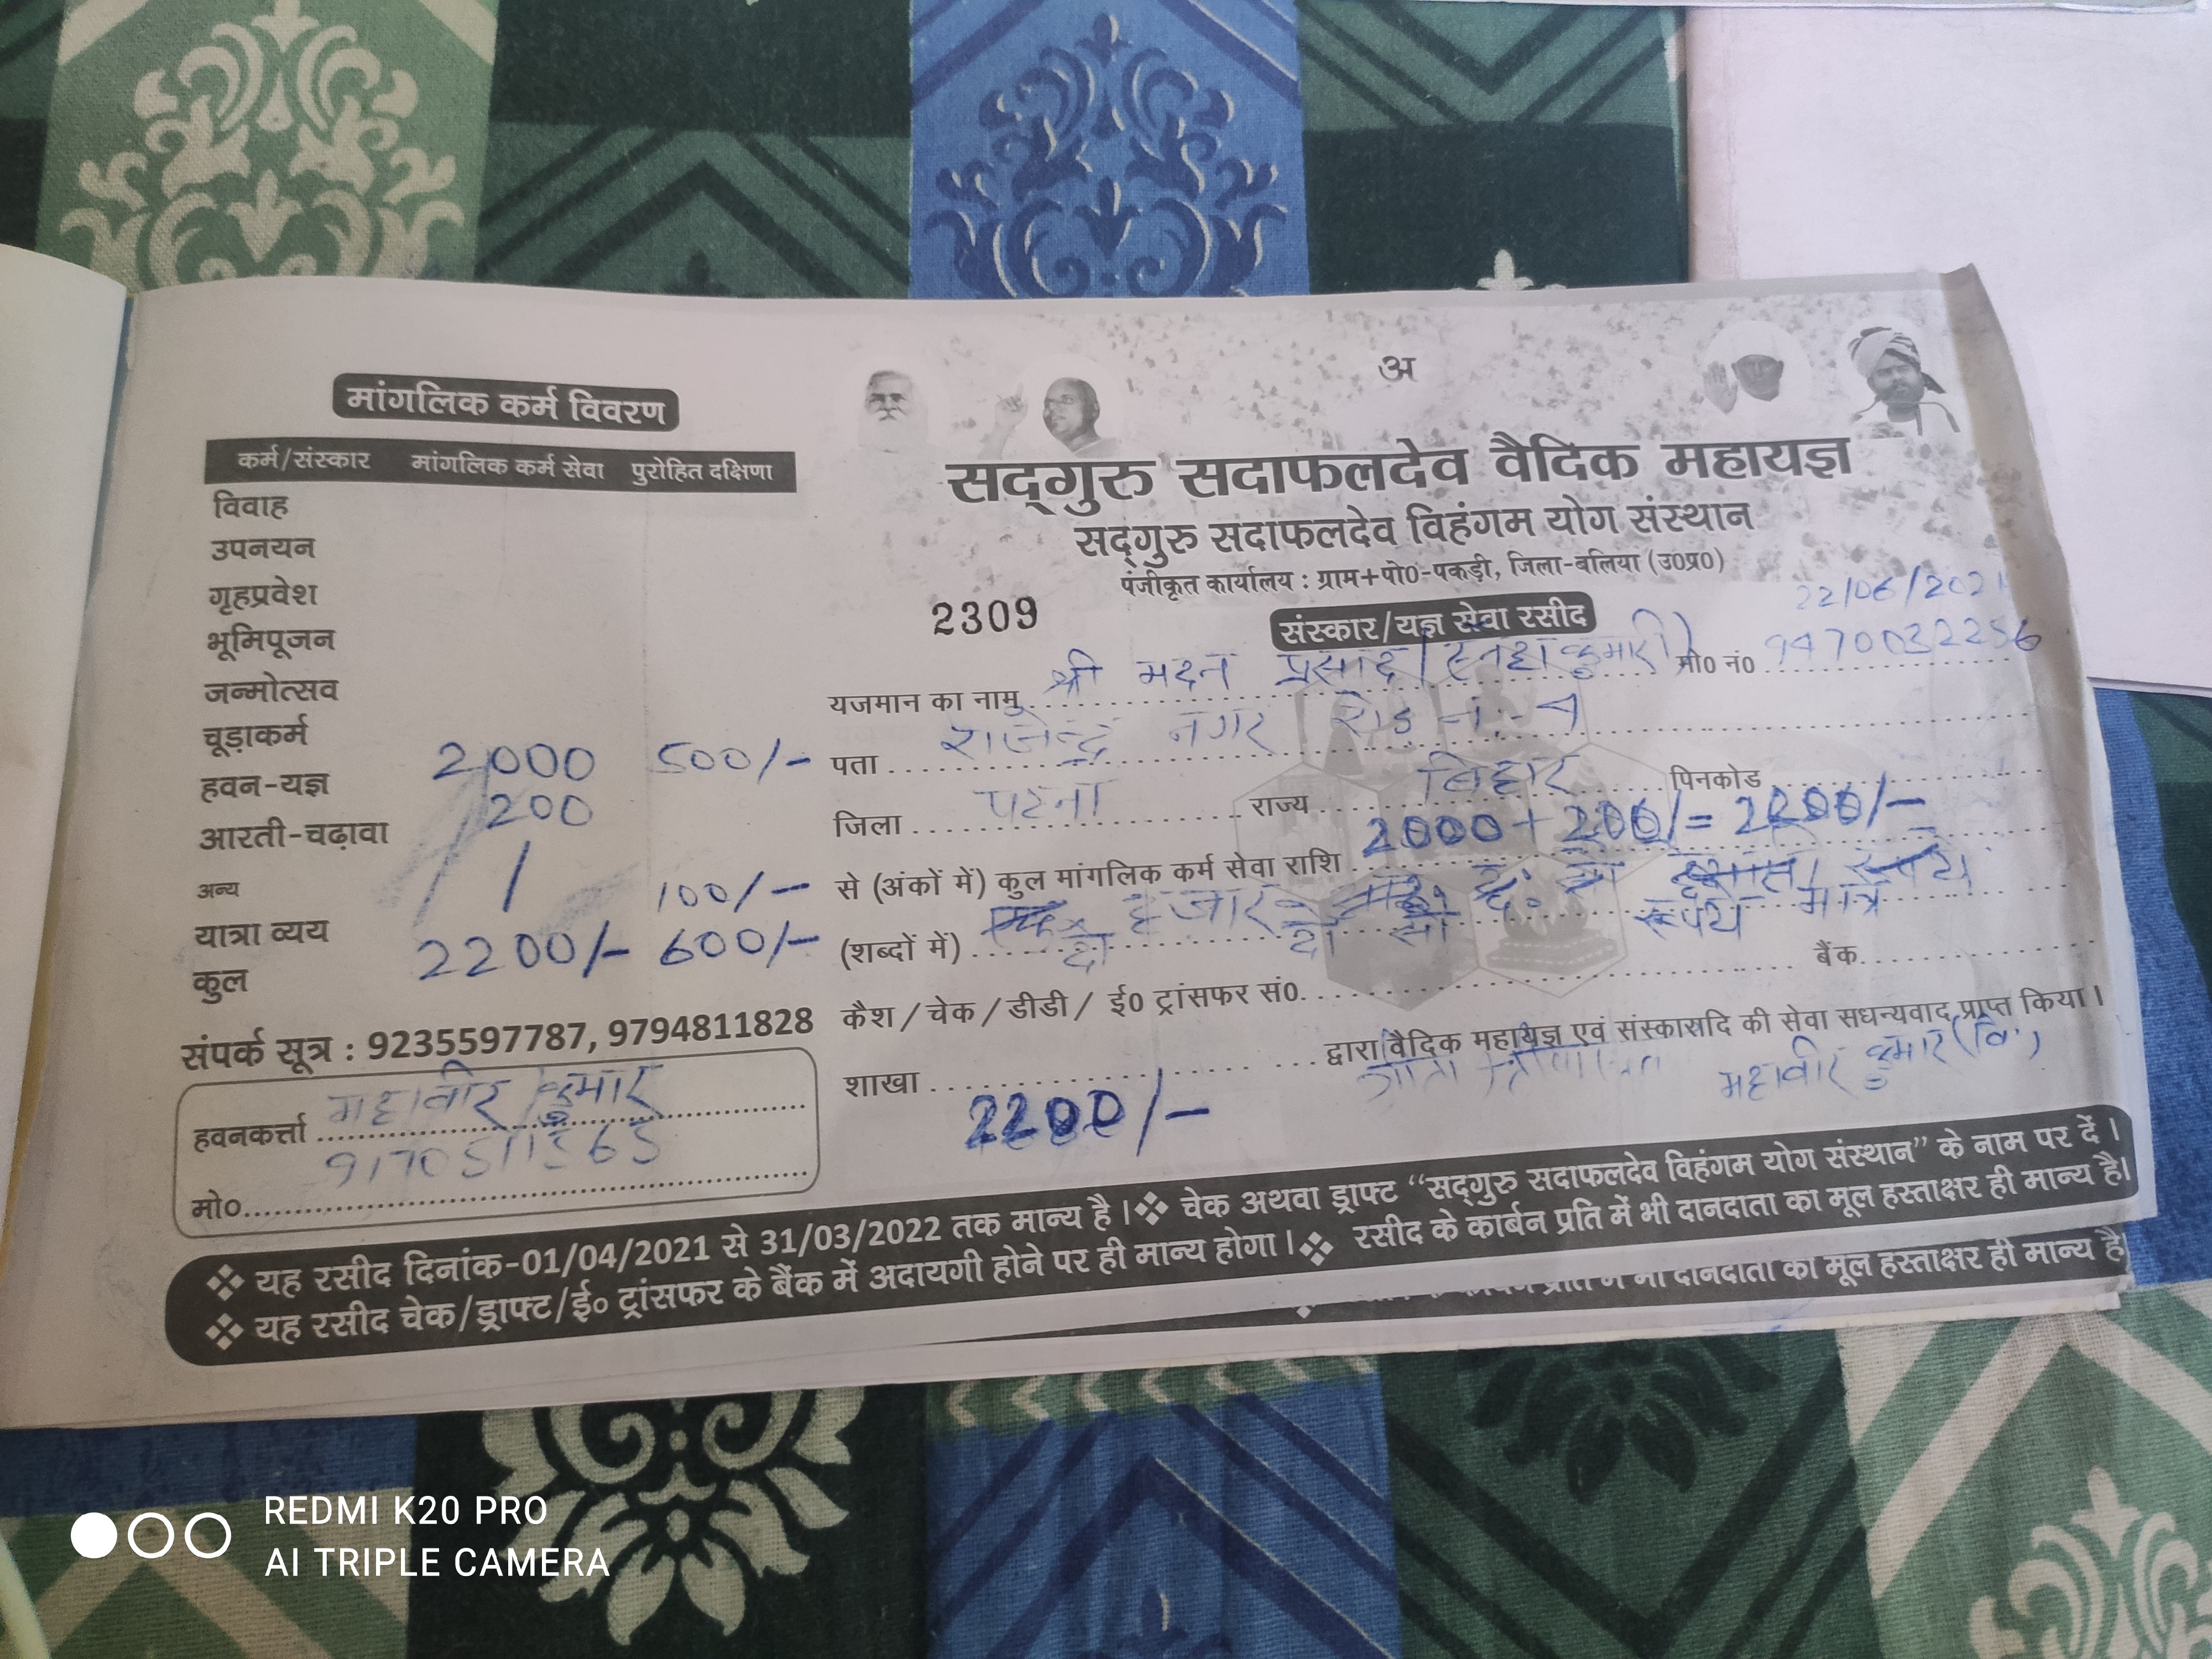 मांगलिक कर्म विवरण
कर्म/संस्कार मांगलिक कर्म सेवा पुरोहित दक्षिणा
विवाह
उपनयन
गृहप्रवेश
भूमिपूजन
जन्मोत्सव
चूड़ाकर्म
हवन-यज्ञ 2000 500/-
आरती-चढ़ावा 200
अन्य
यात्रा व्यय 100/-
कुल 2200/- 600/-
संपर्क सूत्र : 9235597787, 9794811828
हवनकर्त्ता महावीर कुमार
मो०
अ
सद्गुरु सदाफलदेव वैदिक महायज्ञ
सद्गुरु सदाफलदेव विहंगम योग संस्थान
पंजीकृत कार्यालय : ग्राम+पो0-पकड़ी, जिला-बलिया (उ0प्र0)
2309 संस्कार/यज्ञ सेवा रसीद 22/06/2021
यजमान का नाम श्री मदन प्रसाद कुमारी) मो0 नं0 9470032256
पता राजेन्द्र नगर रोड नं:-4
जिला पटना राज्य बिहार पिनकोड
से (अंकों में) कुल मांगलिक कर्म सेवा राशि 2000+200/=2200/-
(शब्दों में) दो हजार दो सौ रूपये मात्र
कैश/चेक/डीडी/ ई0 ट्रांसफर सं0 बैंक
शाखा द्वारा वैदिक महायज्ञ एवं संस्कारादि की सेवा सधन्यवाद प्राप्त किया।
2200/- महावीर कुमार (वि.)
❖ यह रसीद दिनांक-01/04/2021 से 31/03/2022 तक मान्य है।❖ चेक अथवा ड्राफ्ट “सद्गुरु सदाफलदेव विहंगम योग संस्थान” के नाम पर दें।
❖ यह रसीद चेक/ड्राफ्ट/ई० ट्रांसफर के बैंक में अदायगी होने पर ही मान्य होगा।❖ रसीद के कार्बन प्रति में भी दानदाता का मूल हस्ताक्षर ही मान्य है।
दानदाता का मूल हस्ताक्षर ही मान्य है
REDMI K20 PRO
AI TRIPLE CAMERA